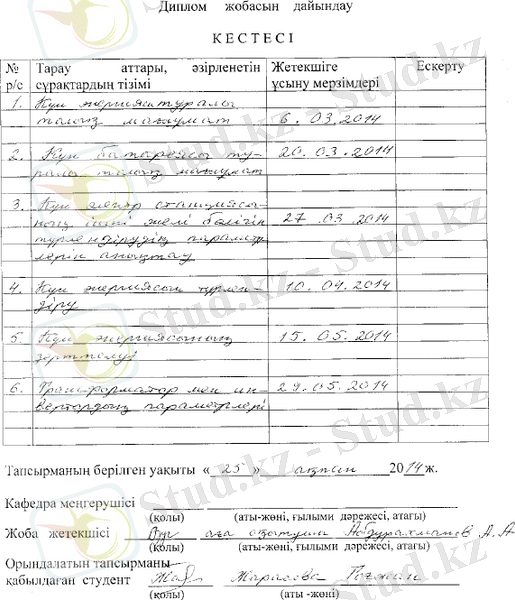 Диплом жобасын дайындау
КЕСТЕСІ
№ р/с
Тарау аттары, әзірленетін сұрақтардың тізімі
Жетекшіге ұсыну мерзімдері
Ескерту
1. Күн энергиясы туралы
толық мағлұмат 6. 03. 2014
2. Күн батареясы ту-
ралы толық мағлұмат 20. 03. 2014
3. Күн электр станциясы-
ның ішкі желі бөлігін 27. 03. 2014
түрлендірудің парамет-
лерін анықтау
4. Күн энергиясын түрлен- 10. 04. 2014
діру
5. Күн энергиясының 15. 05. 2014
зерттелуі
6. Трансформатор мен ин- 29. 05. 2014
вертордың параметрлері
Тапсырманың берілген уақыты « 25 » ақпан 2014 ж.
Кафедра меңгерушісі
(қолы) (аты-жөні, ғылыми дәрежесі, атағы)
Жоба жетекшісі аға оқытушы Абдурахманов А. А
(қолы) (аты-жөні, ғылыми дәрежесі, атағы)
Орындалатын тапсырманы
қабылдаған студент
(қолы) (аты -жөні)
Stud.kz - Stud.kz